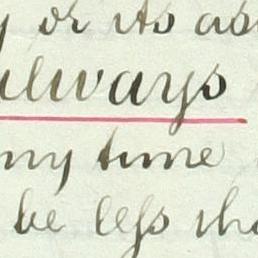 or its as
always
any time
be less tha